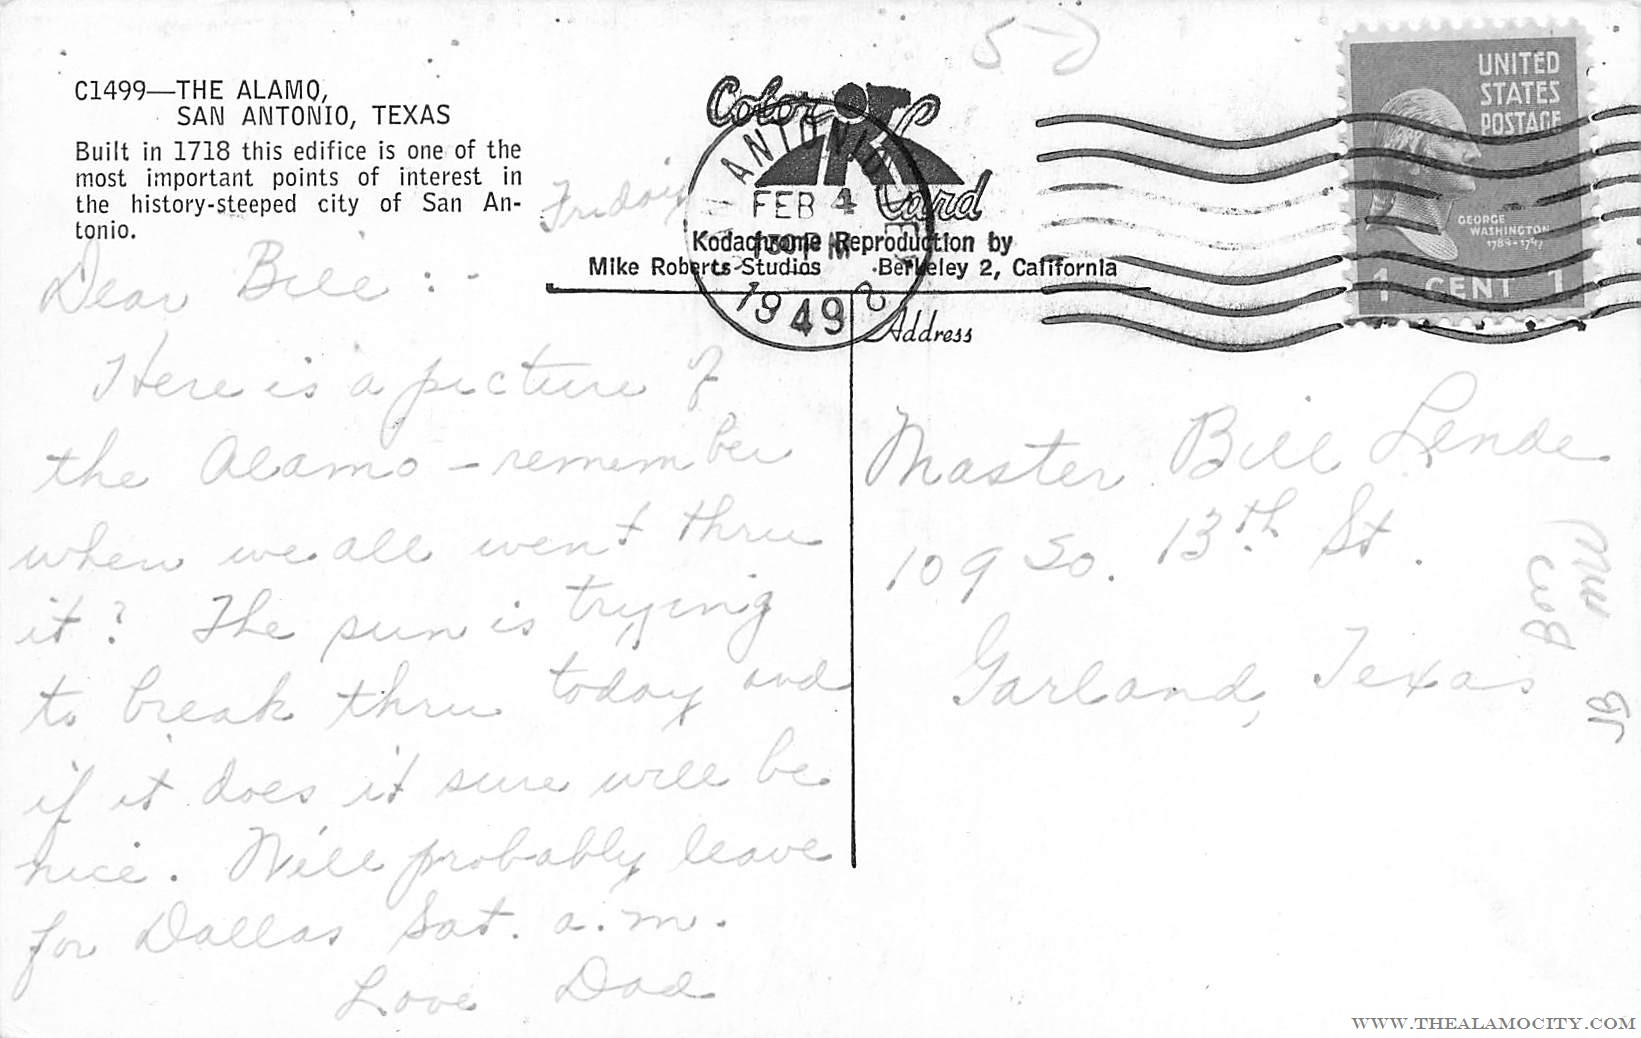 C1499—THE ALAMO,
SAN ANTONIO, TEXAS
Built in 1718 this edifice is one of the
most important points of interest in
the history-steeped city of San An-
tonio.
Color
Card
Kodachrome Reproduction by
Mike Roberts Studios Berkeley 2, California
Address
ANTONIO
FEB 4
130 PM
1949
UNITED
STATES
POSTAGE
GEORGE
WASHINGTON
1789-1797
1 CENT 1
50
Friday
Dear Bill:-
Here is a picture of
the Alamo - remember
when we all went thru
it? The sun is trying
to break thru today and
if it does it sure will be
nice. Will probably leave
for Dallas Sat. a.m.
Love Dad
Master Bill Lende
109 So. 13th St.
Garland, Texas
WWW.THEALAMOCITY.COM